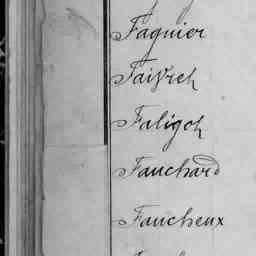 Faquier
Faivrch
Faligoh
Fauchard
Faucheux